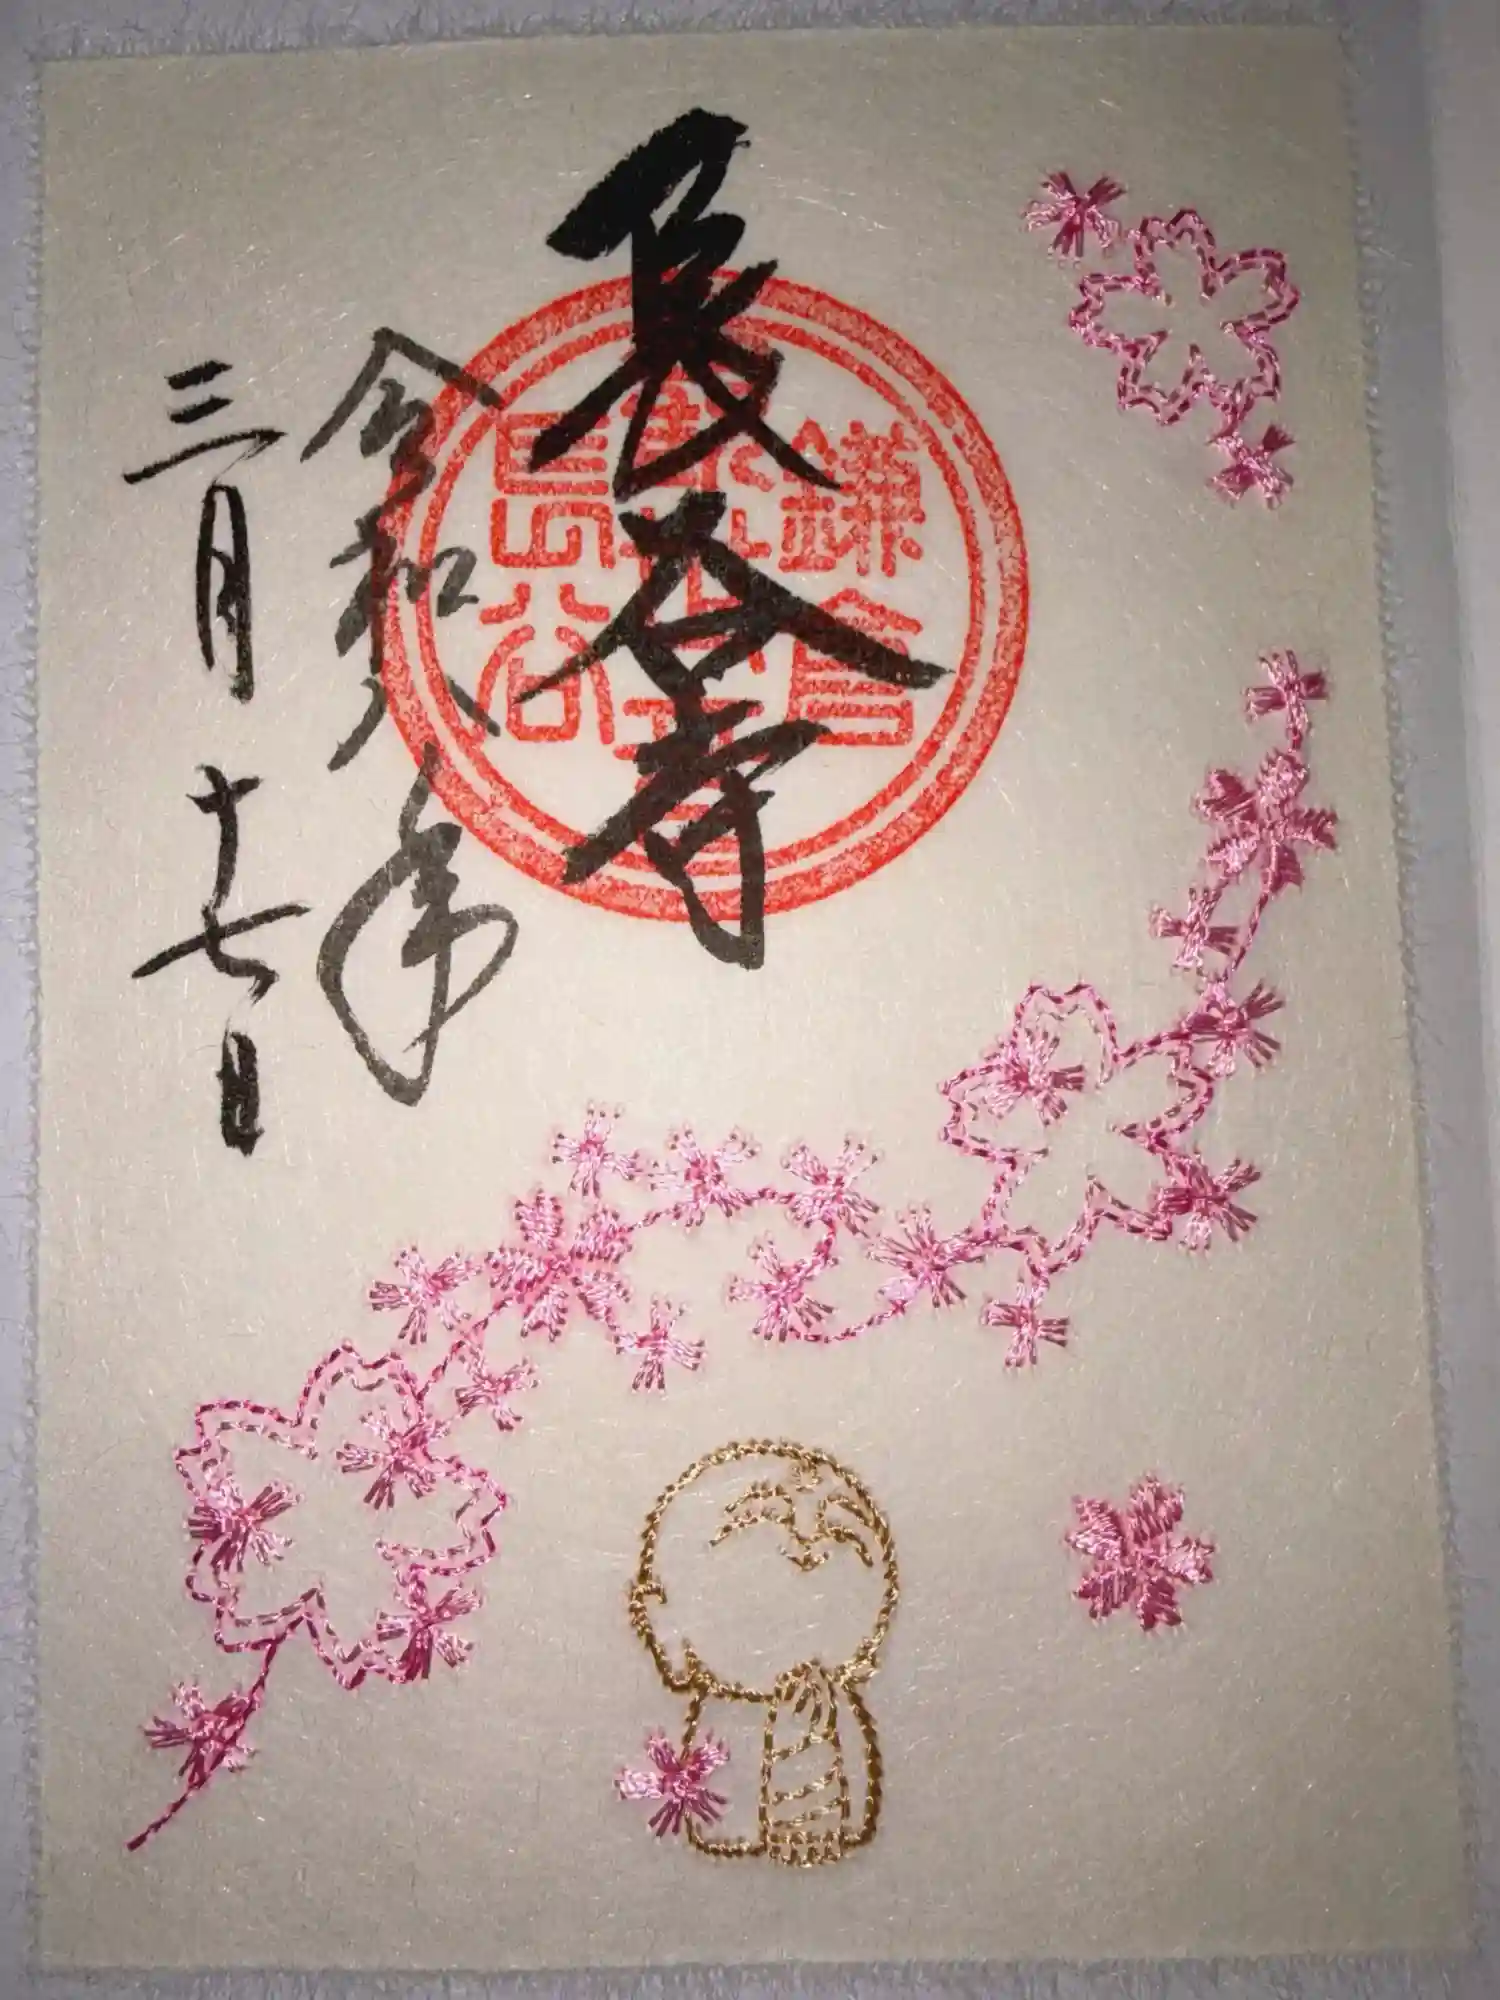 長谷寺
鎌倉
長谷
令和八年
三月十七日